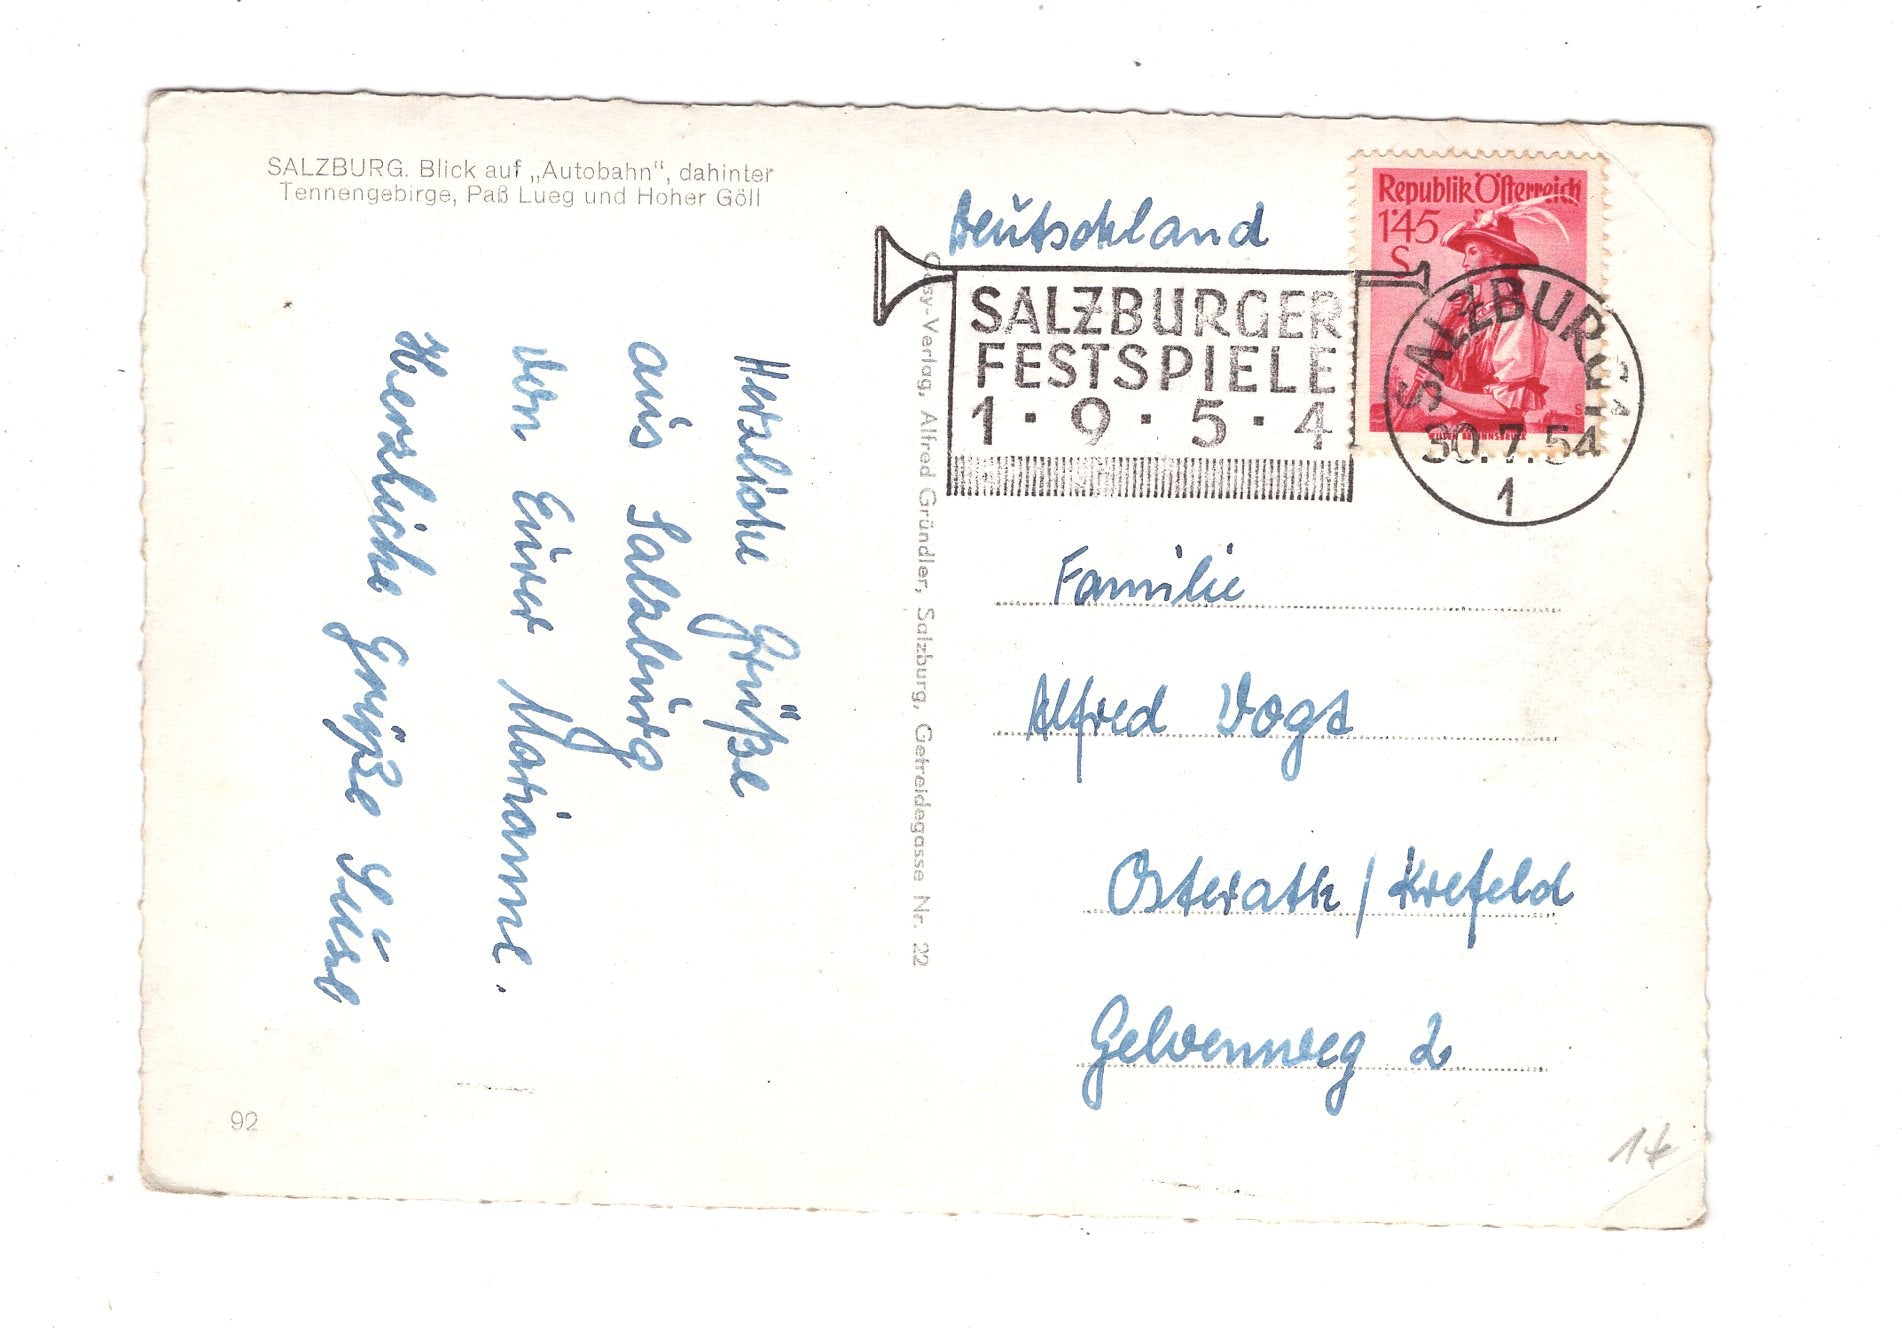 SALZBURG. Blick auf „Autobahn“, dahinter
Tennengebirge, Paß Lueg und Hoher Göll
Herzliche Grüße
aus Salzburg
von Eurer Marianne.
Herzliche Grüße
92
Cosy-Verlag, Alfred Gründler, Salzburg, Getreidegasse Nr. 22
Republik Österreich
1·45
S
SALZBURGER
FESTSPIELE
1·9·5·4
SALZBURG
30.7.54
1
Deutschland
Familie
Alfred Vogt
Osterath / Krefeld
2